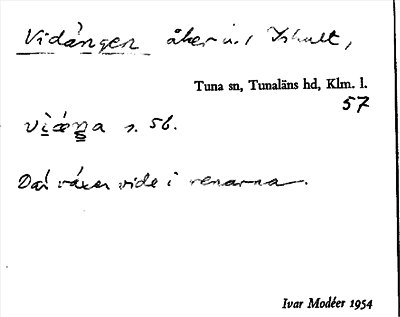 Vidängen åker i
Tuna sn, Tunaläns hd, Klm. l.
57
s. 56.
Där växer vide i renarna.
Ivar Modéer 1954